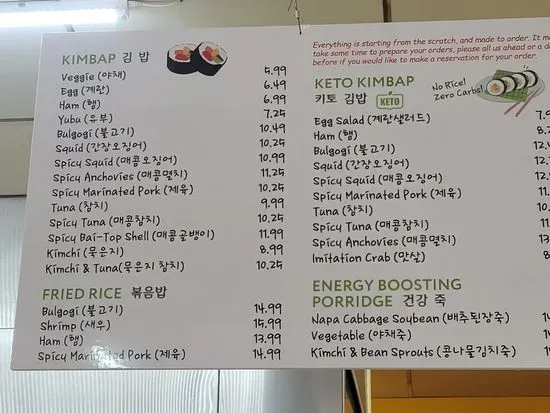 KIMBAP 김 밥
Veggie (야채) 5.99
Egg (계란) 6.49
Ham (햄) 6.99
Yubu (유부) 7.25
Bulgogi (불고기) 10.49
Squid (간장오징어) 10.25
Spicy Squid (매콤오징어) 10.99
Spicy Anchovies (매콤멸치) 11.25
Spicy Marinated Pork (제육) 10.25
Tuna (참치) 9.99
Spicy Tuna (매콤참치) 10.25
Spicy Bai-Top Shell (매콤골뱅이) 11.99
Kimchi (묵은지) 8.99
Kimchi & Tuna(묵은지 참치) 10.25
FRIED RICE 볶음밥
Bulgogi (불고기) 14.99
Shrimp (새우) 15.99
Ham (햄) 13.99
Spicy Marinated Pork (제육) 14.99
Everything is starting from the scratch, and made to order. It m
take some time to prepare your orders, please all us ahead or a d
before if you would like to make a reservation for your order.
KETO KIMBAP
키토 김밥 KETO
No Rice!
Zero Carbs!
Egg Salad (계란샐러드) 7.9
Ham (햄) 8.
Bulgogi (불고기) 12.4
Squid (간장오징어) 12.
Spicy Squid (매콤오징어) 12.
Spicy Marinated Pork (제육)
Tuna (참치)
Spicy Tuna (매콤참치)
Spicy Anchovies (매콤멸치) 13.
Imitation Crab (맛살) 8.9
ENERGY BOOSTING
PORRIDGE 건강 죽
Napa Cabbage Soybean (배추된장죽)
Vegetable (야채죽)
Kimchi & Bean Sprouts (콩나물김치죽)